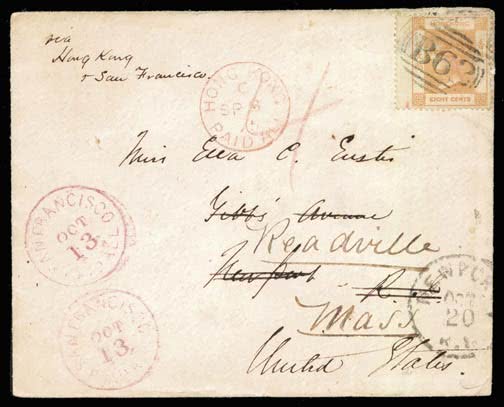 via
Hong Kong
& San Francisco.
HONG KONG
C
SP
PAID
B62
EIGHT CENTS
Miss Ella C. Eustis
Gibbs Avenue
Readville
Newport
R. I.
Mass
United States.
SAN FRANCISCO
OCT
13
SAN FRANCISCO
OCT
13
NEW YORK
OCT
20
N.Y.